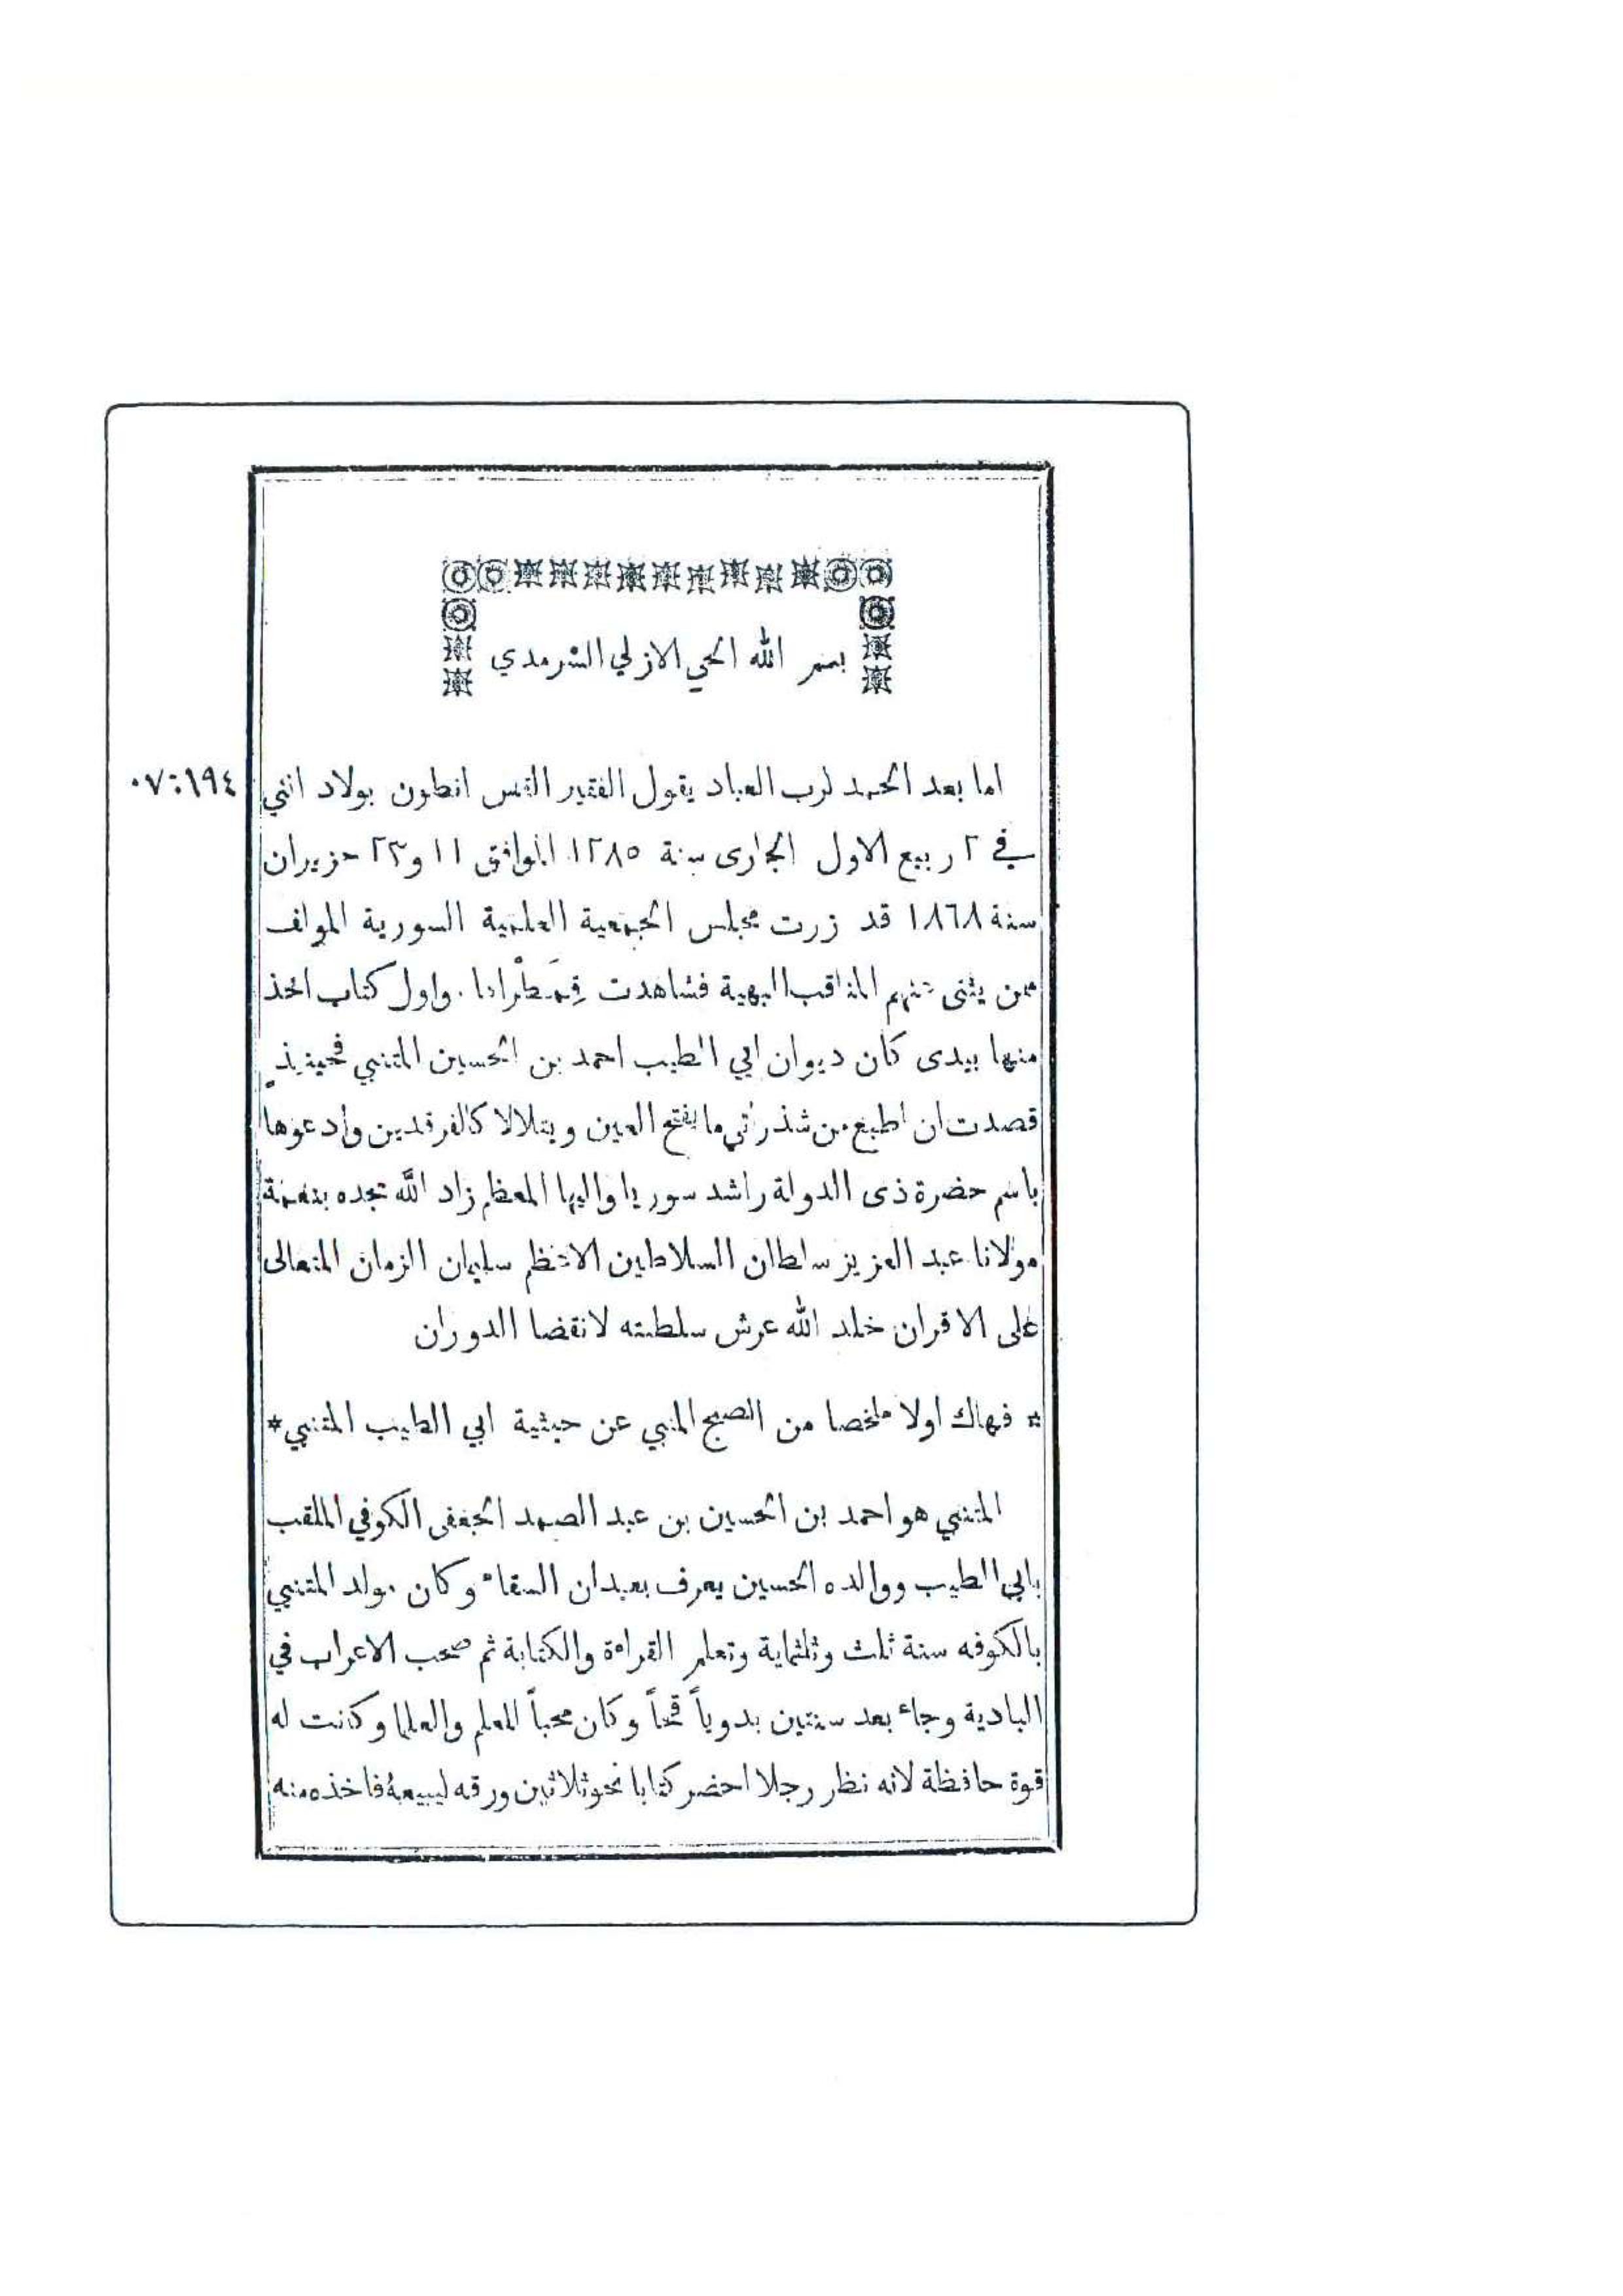 بسم الله الحي الازلي السرمدي
اما بعد الحمد لرب العباد يقول الفقير القس انطون بولاد انني
٠٧:١٩٤
في ٢ ربيع الاول الجارى سنة ١٢٨٥ الموافق ١١ و٢٣ حزيران
سنة ١٨٦٨ قد زرت مجلس الجمعية العلمية السورية المولف
ممن يثنى عنهم المناقب البهية فشاهدت قِمَطْرا . واول كتاب اخذ
منها بيدى كان ديوان ابي الطيب احمد بن الحسين المتنبي فحينيذٍ
قصدت ان اطبع من شذراتي ما يفتح العين ويتلالا كالفرقدين وادعوها
باسم حضرة ذى الدولة راشد سوريا واليها المعظم زاد الله مجده بنعمة
مولانا عبد العزيز سلطان السلاطين الاعظم سليمان الزمان المتعالى
على الاقران خلد الله عرش سلطنته لانقضا الدوران
* فهاك اولا ملخصا من الصبح المنبي عن حيثية ابي الطيب المتنبي *
المتنبي هو احمد بن الحسين بن عبد الصمد الجعفى الكوفي الملقب
بابي الطيب ووالده الحسين يعرف بعبدان السقاء وكان مولد المتنبي
بالكوفه سنة ثلث وثلثماية وتعلم القراءة والكتابة ثم صحب الاعراب في
البادية وجاء بعد سنتين بدوياً قحاً وكان محباً للعلم والعلما وكانت له
قوة حافظة لانه نظر رجلا احضر كتابا نحو ثلاثين ورقه ليبيعهُ فاخذه منه